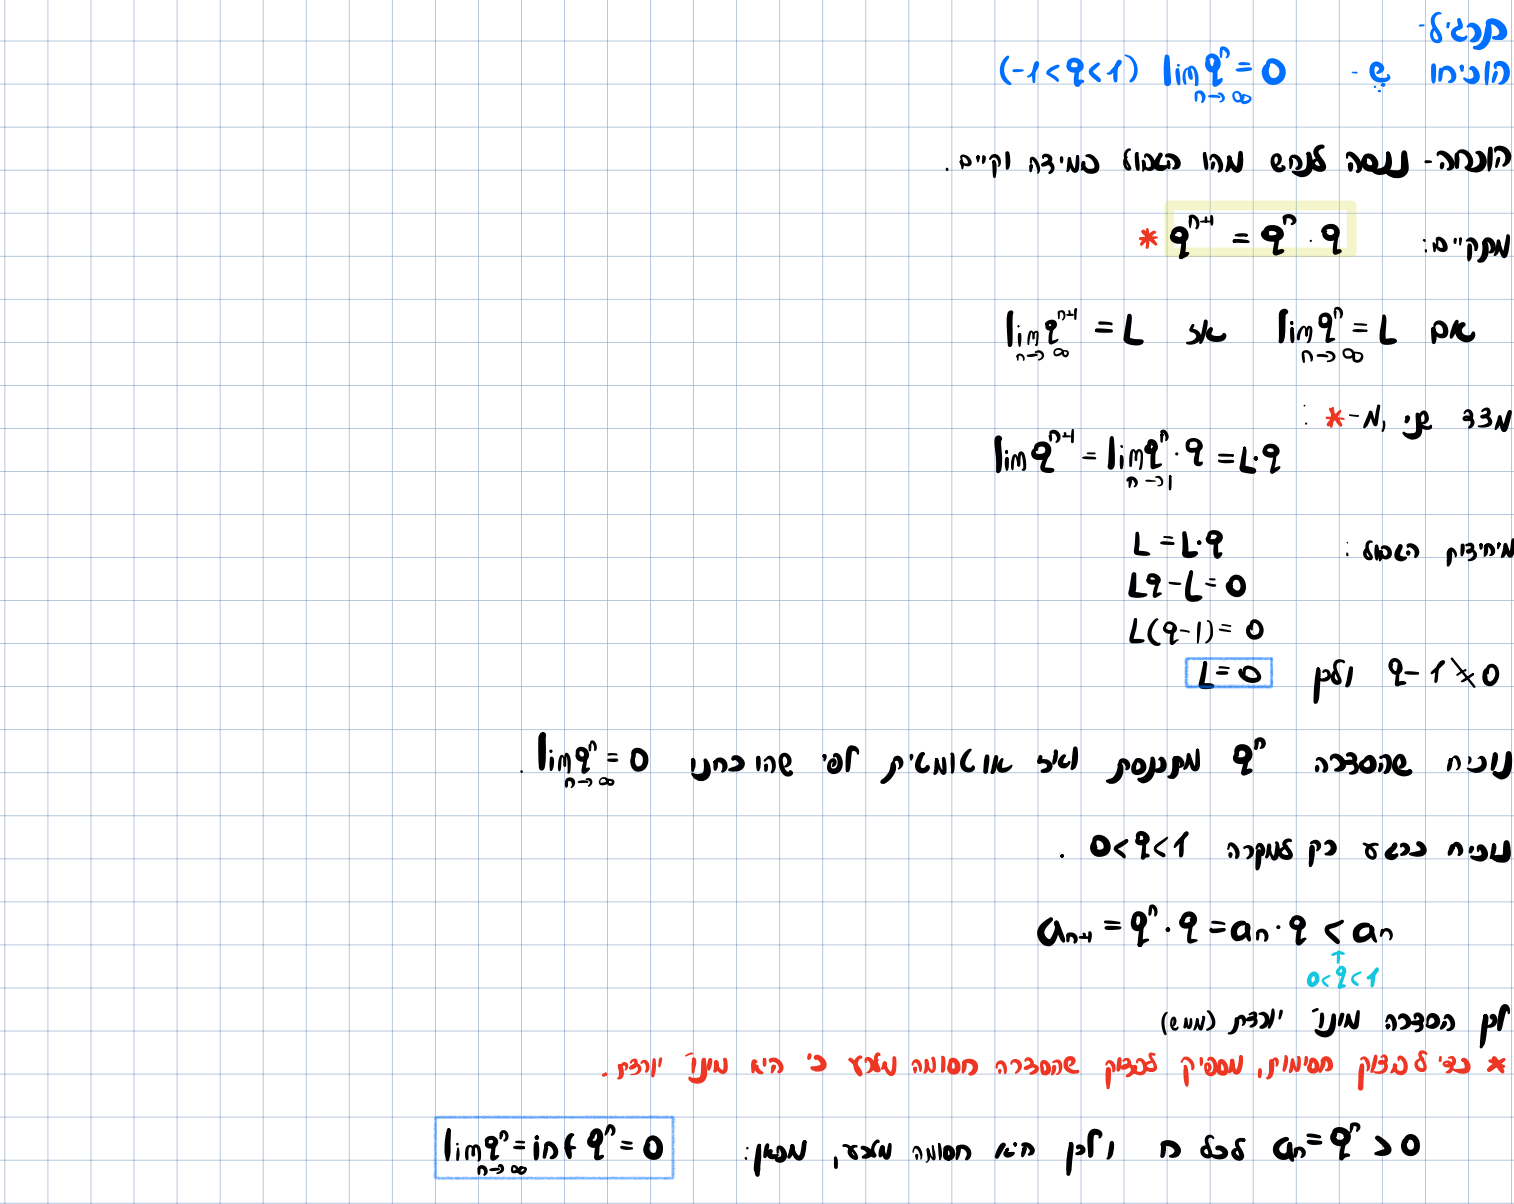 תרגיל-
הוכיחו ש- lim n→∞ qⁿ = 0 (-1<q<1)
הוכחה- ננסה לנחש מהו הגבול במידה וקיים.
מתקיים: qⁿ⁺¹ = qⁿ · q *
אם lim n→∞ qⁿ = L אז lim n→∞ qⁿ⁺¹ = L
מצד שני, מ-* :
lim qⁿ⁺¹ = lim n→1 qⁿ · q = L·q
מיחידות הגבול: L = L·q
Lq - L = 0
L(q-1) = 0
q-1 ≠ 0 ולכן L = 0
נוכיח שהסדרה qⁿ מתכנסת ואז אוטומטית לפי שהוכחנו lim n→∞ qⁿ = 0 .
נוכיח כרגע רק למקרה 0<q<1 .
aₙ₊₁ = qⁿ · q = aₙ · q < aₙ
↑
0<q<1
לכן הסדרה מונו' יורדת (ממש)
* כדי לבדוק חסימות, מספיק לבדוק שהסדרה חסומה מלרע כי היא מונו' יורדת.
aₙ = qⁿ > 0 לכל n ולכן היא חסומה מלרע, מכאן: lim n→∞ qⁿ = inf qⁿ = 0